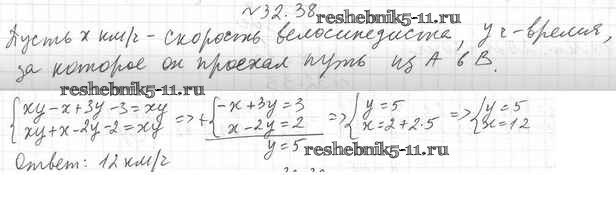 №32.38.
reshebnik5-11.ru
Пусть x км/ч - скорость велосипедиста, y ч - время,
за которое он проехал путь из A в B.
reshebnik5-11.ru
{xy-x+3y-3=xy
xy+x-2y-2=xy => +{-x+3y=3
x-2y=2
y=5 => {y=5
x=2+2·5 => {y=5
x=12
Ответ: 12 км/ч
reshebnik5-11.ru